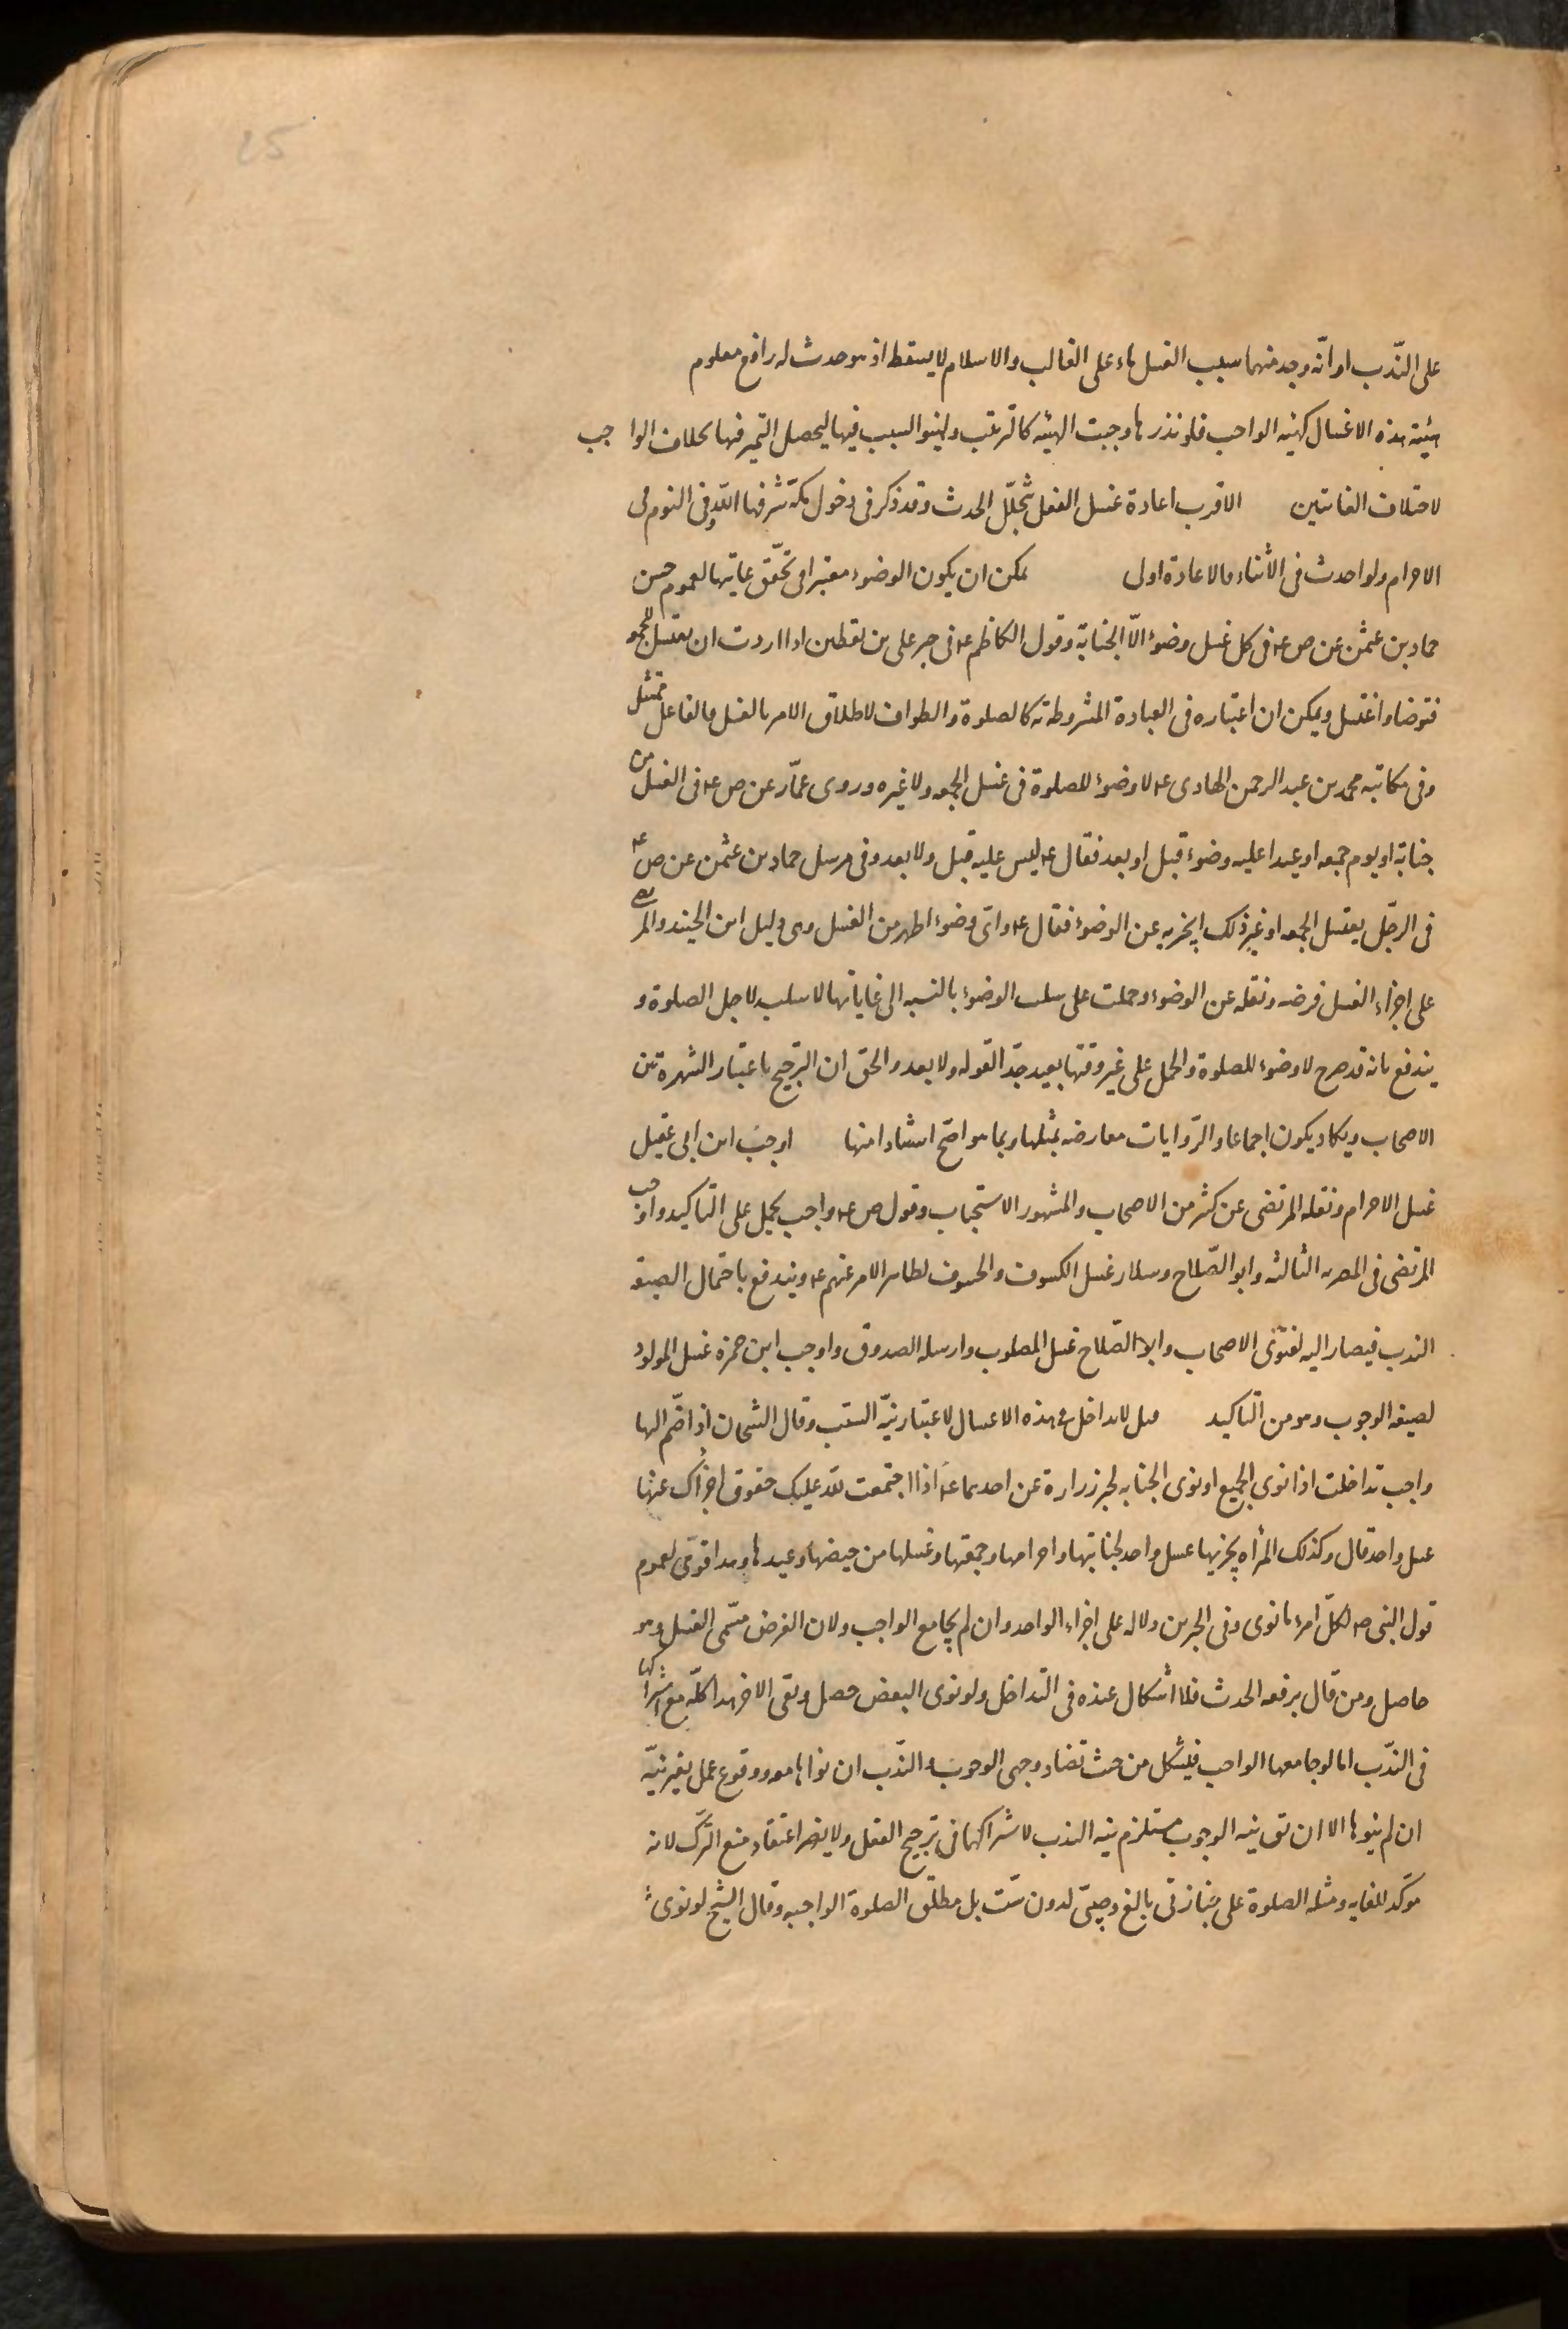 25
على النّدب او انّه وجد منهما سبب الغسل بناء على الغالب والاسلام لا يسقط اذ هو حدث له رافع معلوم
هيئة هذه الاغسال كهيئه الواجب فلو نذرها وجبت الهيئه كالترتيب ولينو السبب فيها ليحصل التميز فيها بخلاف الواجب
لاختلاف الغايتين الاقرب اعادة غسل الفعل بتخلّل الحدث وقد ذكر فى دخول مكة شرفها الله وفى النوم فى
الاحرام ولو احدث فى الأثناء فالاعادة اولى يمكن ان يكون الوضوء معتبرا فى تحقق غايتها لعموم
حماد بن عثمن عن ص ع فى كل غسل وضوء الّا الجنابة وقول الكاظم ع فى خبر على بن يقطين اذا اردت ان يغتسل للجمعه
فتوضا واغتسل ويمكن ان اعتباره فى العبادة المشروطة به كالصلوة والطواف لاطلاق الامر بالغسل فالفاعل ممتثل
وفى مكاتبه محمد بن عبد الرحمن الهادى ع لا وضوء للصلوة فى غسل الجمعه ولا غيره وروى عمّار عن ص ع فى الغسل من
جنابة او يوم جمعه او عيد اعليه وضوء قبل او بعد فقال ع ليس عليه قبل ولا بعد وفى مرسل حماد بن عثمن عن ص ع
فى الرجّل يغتسل الجمعه او غير ذلك ايجزيه عن الوضوء فقال ع واىّ وضوء اطهر من الغسل وهى دليل ابن الجنيد والمر
على اجزاء الغسل فرضه ونفله عن الوضوء وحملت على سلب الوضوء بالنسبه الى غاياتها لا سلبه لاجل الصلوة و
يندفع بانه قد صرح لا وضوء للصلوة والحمل على غير وقتها بعيد جدّا لقوله ولا بعد والحق ان الترجيح باعتبار الشهرة بين
الاصحاب ويكاد يكون اجماعا والرّوايات معارضه بمثلها وبما هو اصّح اسنادا منها اوجبَ ابن ابى عقيل
غسل الاحرام ونقله المرتضى عن كثير من الاصحاب والمشهور الاستحباب وقول ص ع واجب يحمل على التاكيد واوجب
المرتضى فى المصريه الثالثه وابو الصّلاح وسلار غسل الكسوف والخسوف لظاهر الامر عنهم ع ويندفع باحتمال الصيغه
الندب فيصار اليه لفتوى الاصحاب وابو الصّلاح غسل المصلوب وارسله الصدوق واوجب ابن حمزه غسل المولود
لصيغه الوجوب وهو من التاكيد قيل لا تداخل فى هذه الاغسال لاعتبار نيّة السبب وقال الشيخان اذا ضّم اليها
واجب تداخلت اذا نوى الجميع او نوى الجنابه لخبر زرارة عن احدهما ع اذا اجتمعت لله عليك حقوق اجزأك عنها
غسل واحد قال وكذلك المرأه يجزيها غسل واحد لجنابتها واحرامها وجمعتها وغسلها من حيضها وعيدها وهذا قوىّ لعموم
قول النبى ص لكلّ امرء ما نوى وفى الخبرين دلاله على اجزاء الواحد وان لم يجامع الواجب ولان الغرض مسّمى الغسل وهو
حاصل ومن قال برفعه الحدث فلا اشكال عنده فى التداخل ولو نوى البعض حصل وبقى الاخر هذا كلّه مع اشتراكها
فى النّدب اما لو جامعها الواجب فيشكل من حيث تضاد وجهى الوجوب والندب ان نواهما معه ووقوع عمل بغير نيّة
ان لم ينوها الا ان يق نيه الوجوب مستلزم نيه الندب لاشتراكهما فى ترجيح الفعل ولا يضر اعتقاد منع الترك لانه
موكد للغايه ومثله الصلوة على جنازتى بالغ وصبىّ لدون ستّ بل مطلق الصلوة الواجبه وقال الشيخ لو نوى